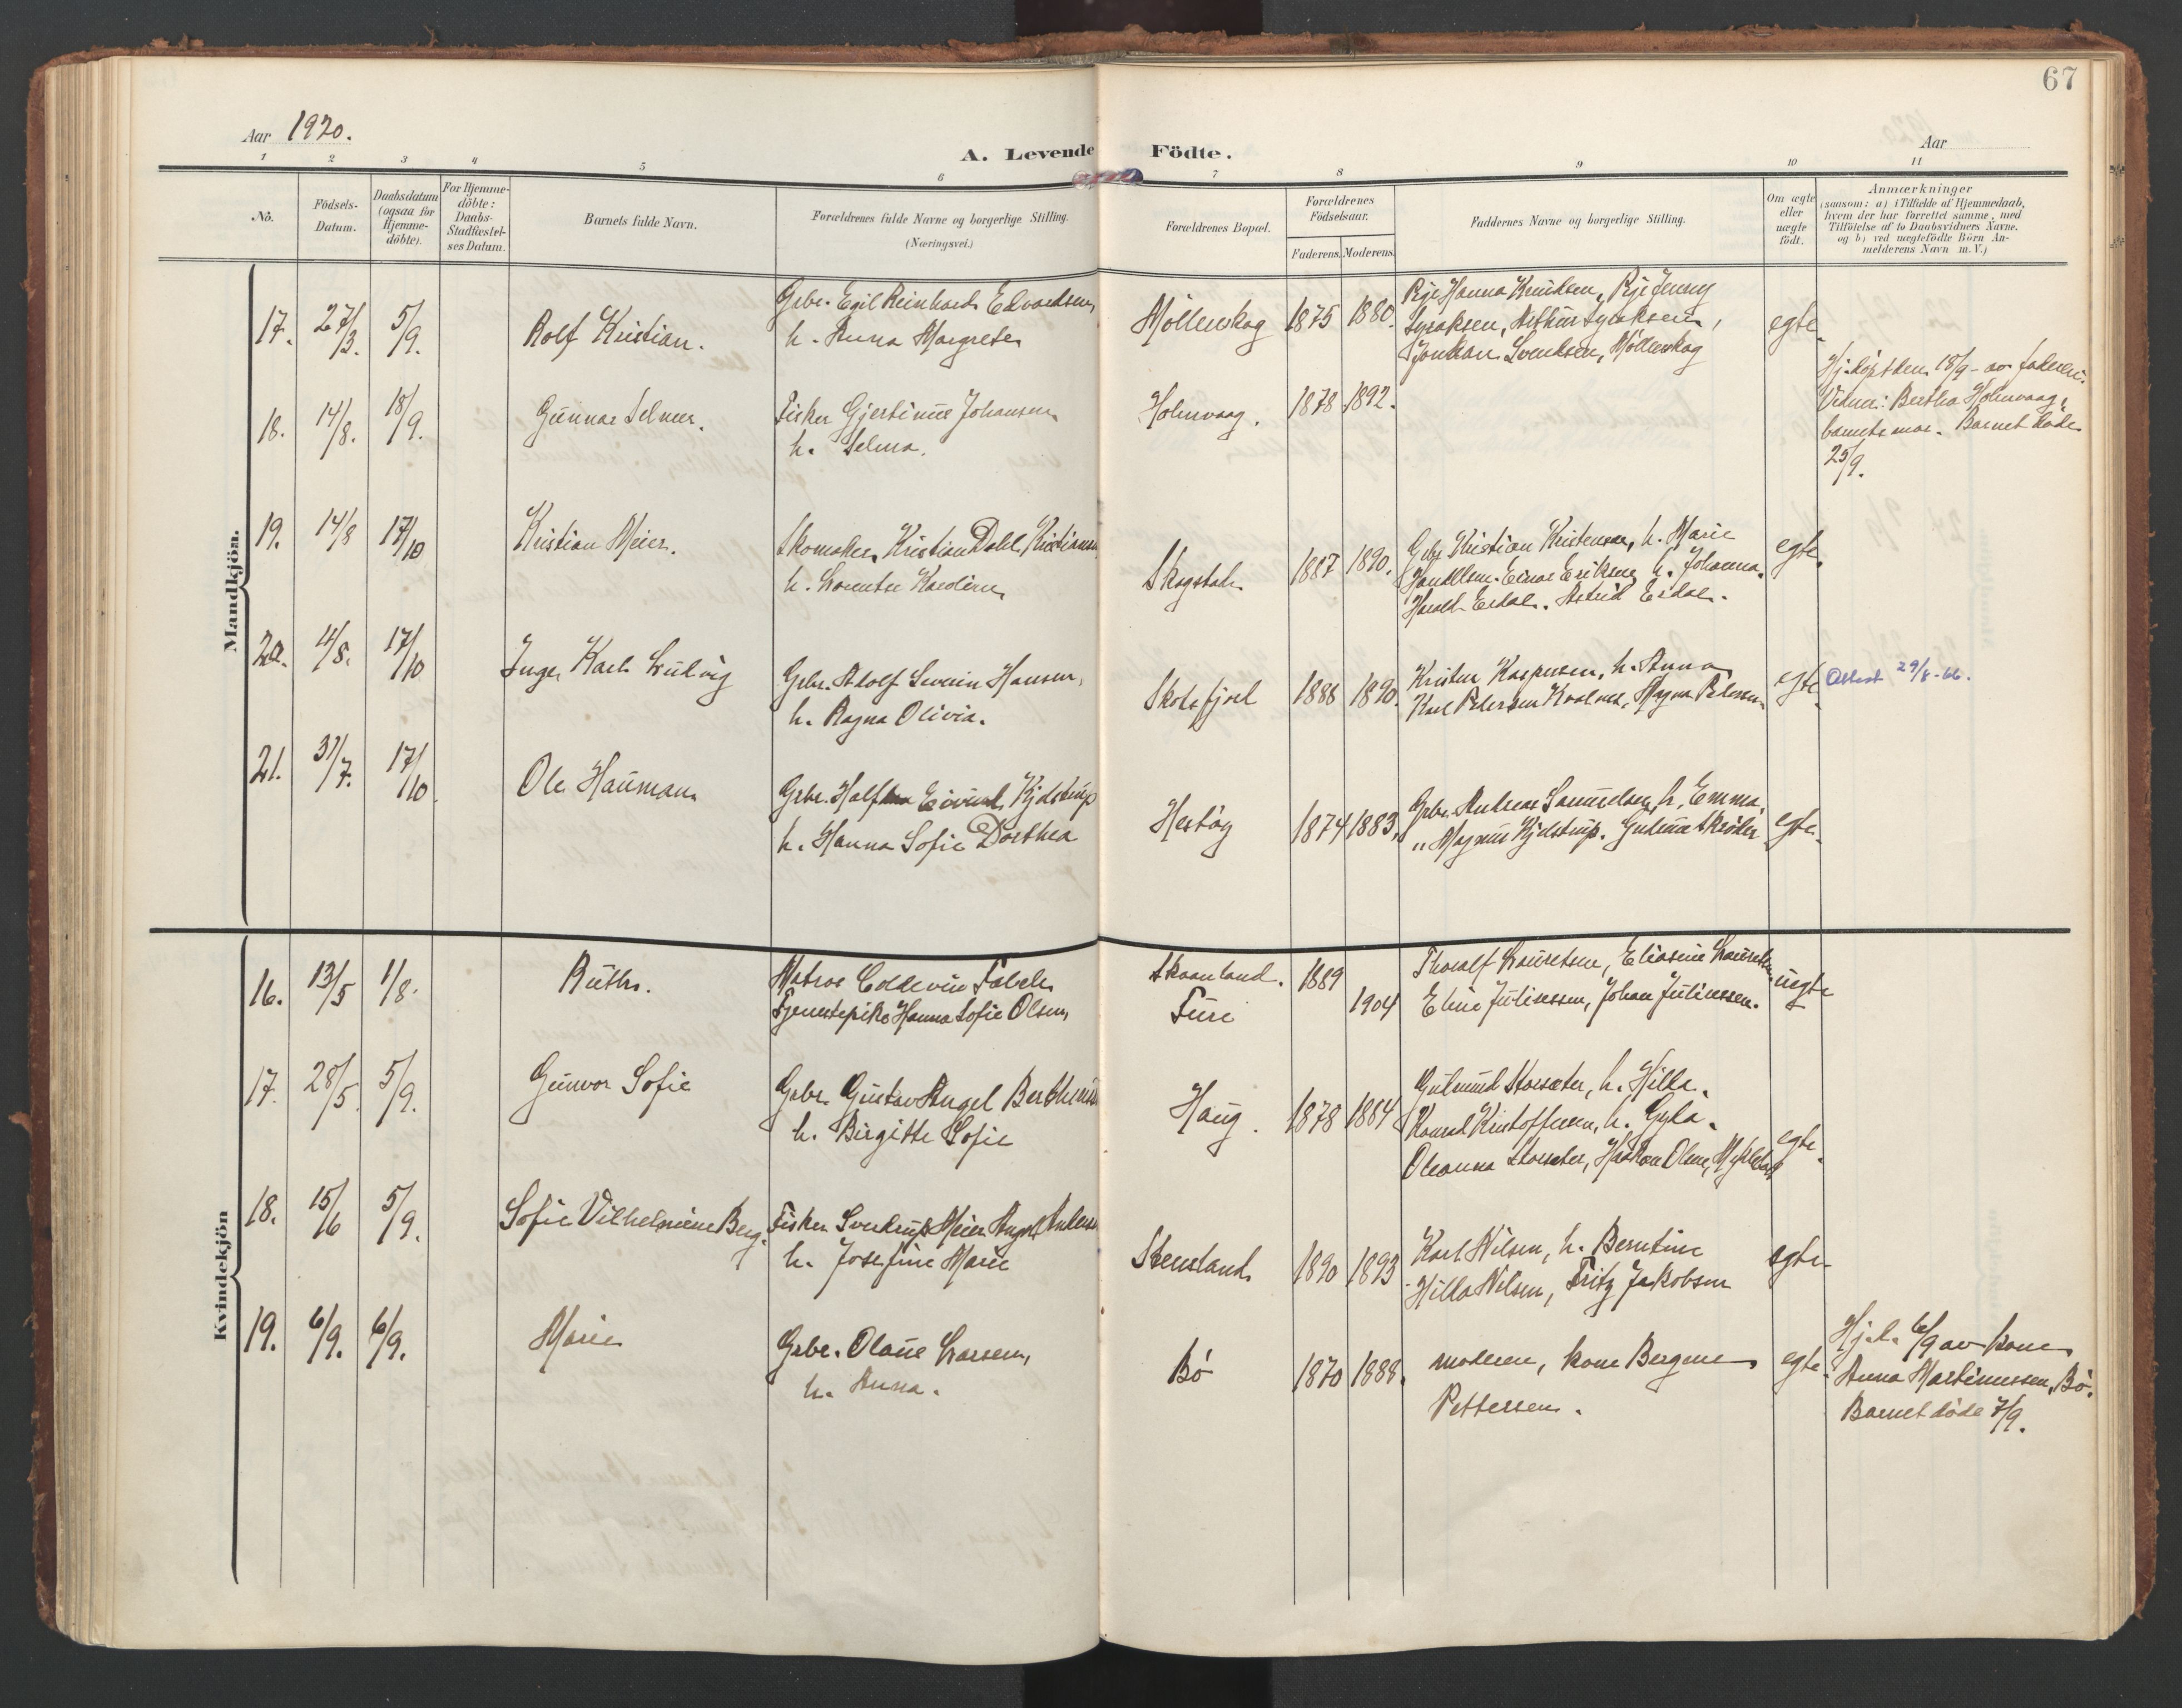 67
Aar 1920.
A. Levende Födte.
Aar
1 2 3 4 5 6 7 8 9 10 11
No.
Födsels-
Datum.
Daabsdatum
(ogsaa for
Hjemme-
döbte).
For Hjemme-
döbte:
Daabs-
Stadfæstel-
ses Datum.
Barnets fulde Navn.
Forældrenes fulde Navne og borgerlige Stilling.
(Næringsvei.)
Forældrenes Bopæl.
Forældrenes
Födselsaar.
Faderens. Moderens.
Faddernes Navne og borgerlige Stilling.
Om ægte
eller
uægte
födt.
Anmærkninger
(saasom: a) i Tilfælde af Hjemmedaab,
hvem der har forrettet samme, med
Tilföielse af to Daabsvidners Navne.
og b) ved uægtefödte Börn An-
melderens Navn m. V.)
Mandkjön.
17. 27/3. 5/9. Rolf Kristian.
Grbr. Egil Reinhard Edvardsen,
h. Anna Margrete
Möllenskog 1875 1880.
Pige Hanna Knudsen, Pige Jenny
Syraksen, Arthur Syraksen,
Svendsen, Möllenskog
egte
18. 14/8. 18/9. Gunnar Selmer.
Fisker Gjertinus Johansen
h. Selma.
Holmvaag. 1878 1892.
Hj.döpt den 18/9 av faderen.
Vidner: Bertha Holmvaag,
barnets mor. Barnet döde
25/9.
19. 14/8 17/10 Kristian Meier.
Skomaker Kristian Dahl Kristiansen
h. Lorentse Kardine
Skogstad 1887 1890.
Grbr Kristian Kristensen, h. Marie
Einar Eriksen, h. Johanna.
Harald Erdal. Astrid Erdal.
egte.
20. 4/8. 17/10 Inge Karl Ludvig
Grbr. Adolf Severin Hansen,
h. Ragna Olivia.
Skotsfjord 1888 1890.
Kristen Kaspersen, h. Anna
Karl Petersen Kvalnes, Magna Petersen
egte.
Attest 29/8-66.
21. 31/7. 17/10. Ole Hauman
Grbr. Halfdan Eivind Kjelstrup
h. Hanna Sofie Dorthea
Hestöy 1874 1883.
Grbr. Andreas Samuelsen, h. Emma,
" Magnus Kjelstrup.
egte.
Kvindekjön
16. 13/5 1/8. Ruth.
Matros Coldevin Falch
Tjenestepike Hanna Sofie Olsen,
Skaanland. 1889
Fure 1904
Thoralf Lauritsen, Eliasine Lauritsen
Eline Juliussen, Johan Juliussen.
uegte
17. 28/5. 5/9. Gunvor Sofie
Grbr. Gustav Angel Berthinus
h. Birgitte Sofie
Haug. 1878 1884
Gudmund Storsæter, h. Hilda.
Konrad Kristoffersen, h. Gyda.
Oleanna Storsæter, Haakon Olsen,
egte.
18. 15/6 5/9. Sofie Vilhelmine Berg.
Fisker Sverdrup Meier Angel Andersen
h. Josefine Marie
Stensland 1890 1893
Karl Nilsen, h. Berntine
Hilda Nilsen, Fritz Jakobsen
egte
19. 6/9. 6/9. Marie
Grbr. Olaus Larsen,
h. Anna.
Bö 1870 1888.
moderen, kone Bergine
Pettersen.
egte.
Hj.d. 6/9 av kone
Anna Martinussen, Bö.
Barnet döde 7/9.